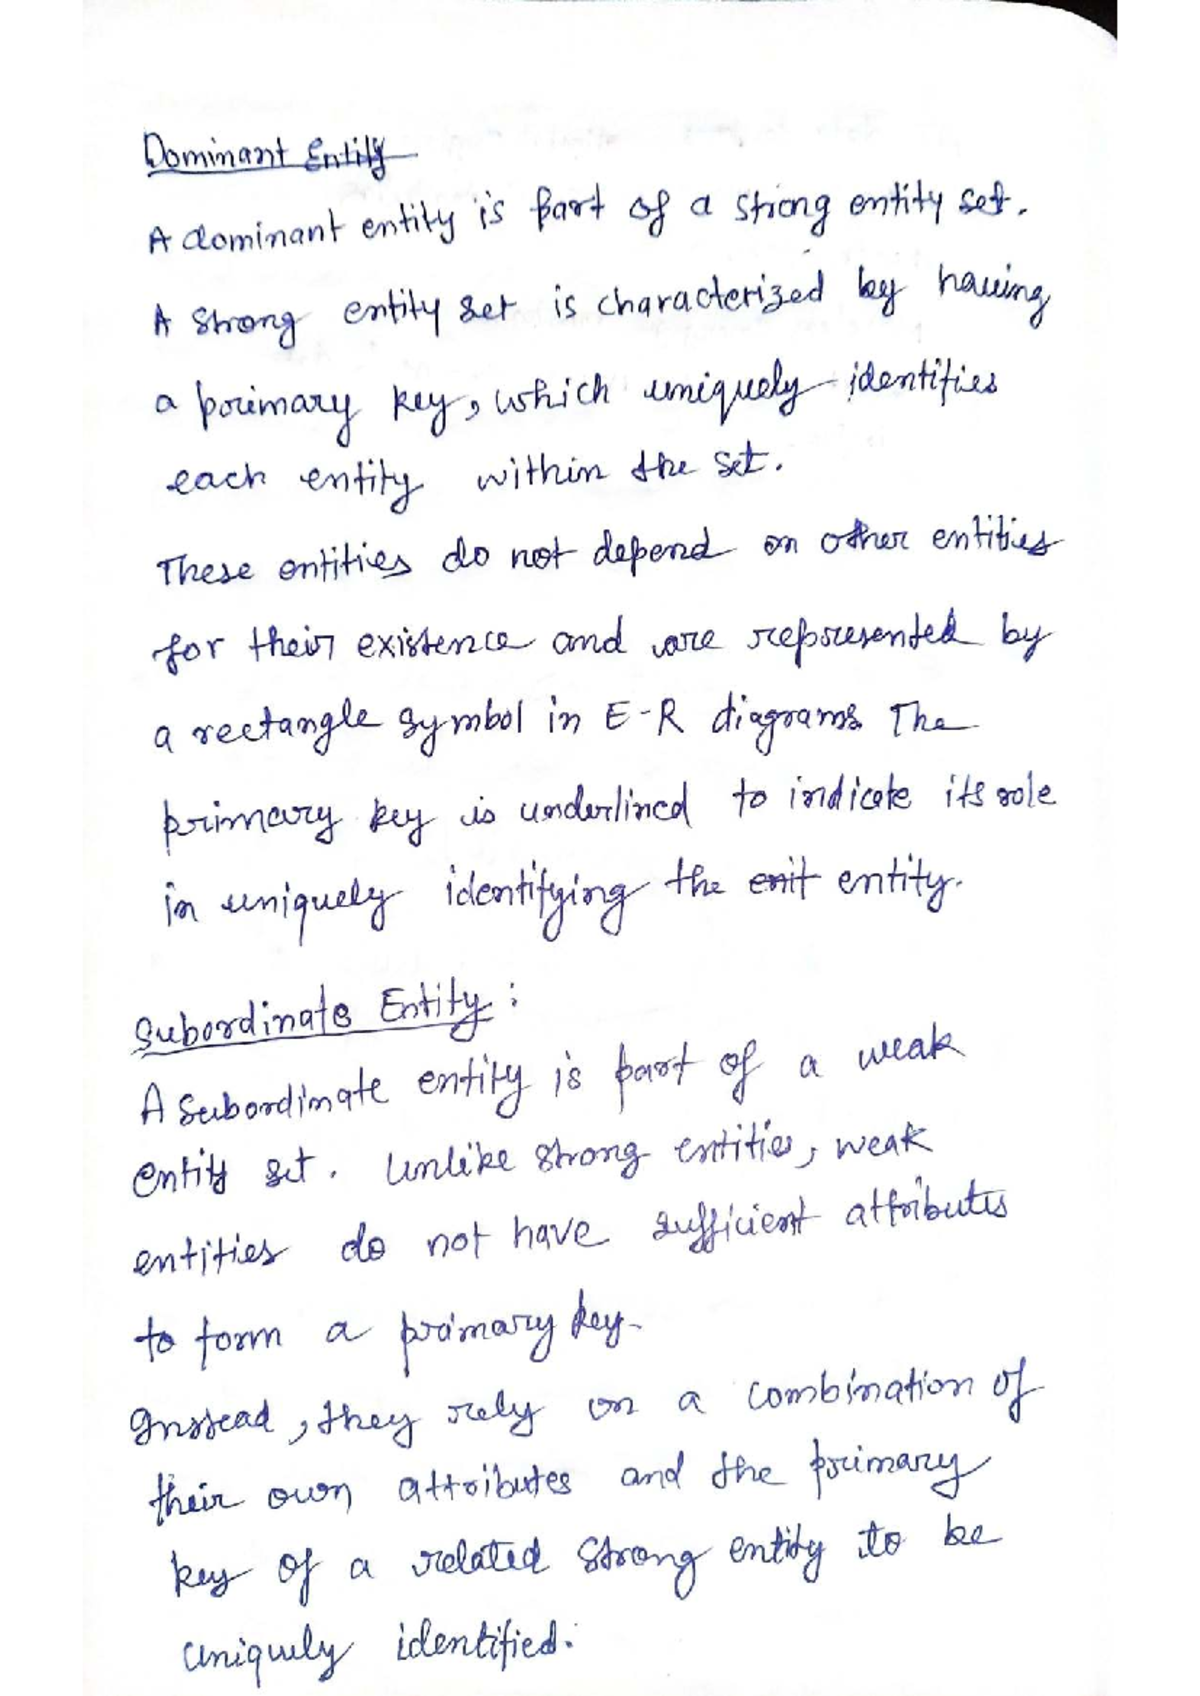 Dominant Entity
A dominant entity is part of a strong entity set.
A strong entity set is characterized by having
a primary key, which uniquely identifies
each entity within the set.
These entities do not depend on other entities
for their existence and are represented by
a rectangle symbol in E-R diagrams. The
primary key is underlined to indicate its role
in uniquely identifying the enit entity.
Subordinate Entity:
A Subordinate entity is part of a weak
entity set. Unlike strong entities, weak
entities do not have sufficient attributes
to form a primary key.
Instead, they rely on a combination of
their own attributes and the primary
key of a related strong entity to be
uniquely identified.